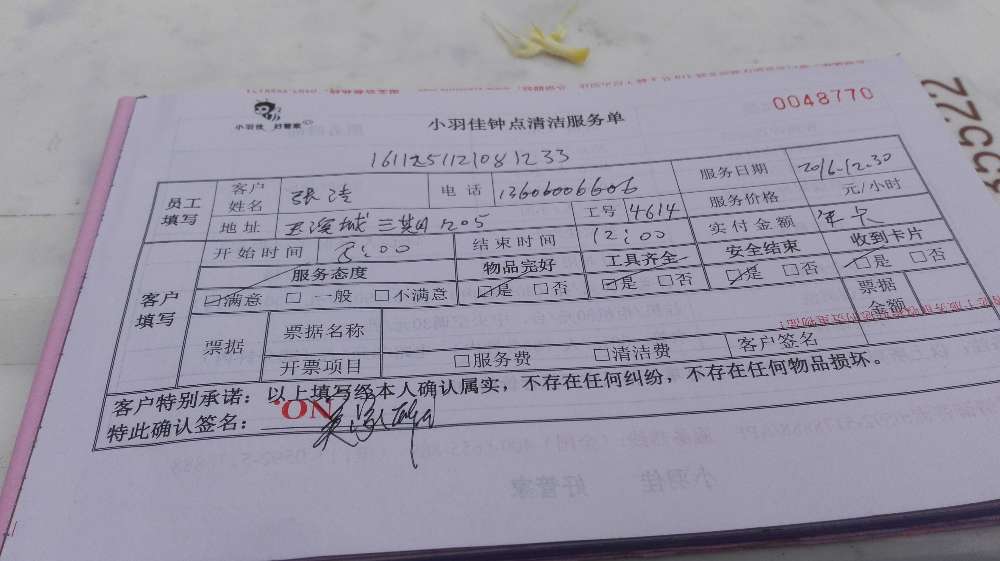 0048770
小羽佳 好管家
小羽佳钟点清洁服务单
1611251121081233
员工填写 客户姓名 张 电话 13606006606 服务日期 2016.12.30
地址 城三期1205 工号 4614 服务价格 元/小时
开始时间 8:00 结束时间 12:00 实付金额 年卡
客户填写 服务态度 物品完好 工具齐全 安全结束 收到卡片
☑满意 □一般 □不满意 ☑是 □否 ☑是 □否 ☑是 □否 ☑是 □否
票据 票据名称 票据金额
开票项目 □服务费 □清洁费 客户签名
客户特别承诺：以上填写经本人确认属实，不存在任何纠纷，不存在任何物品损坏。
特此确认签名：
NO.
小羽佳 好管家